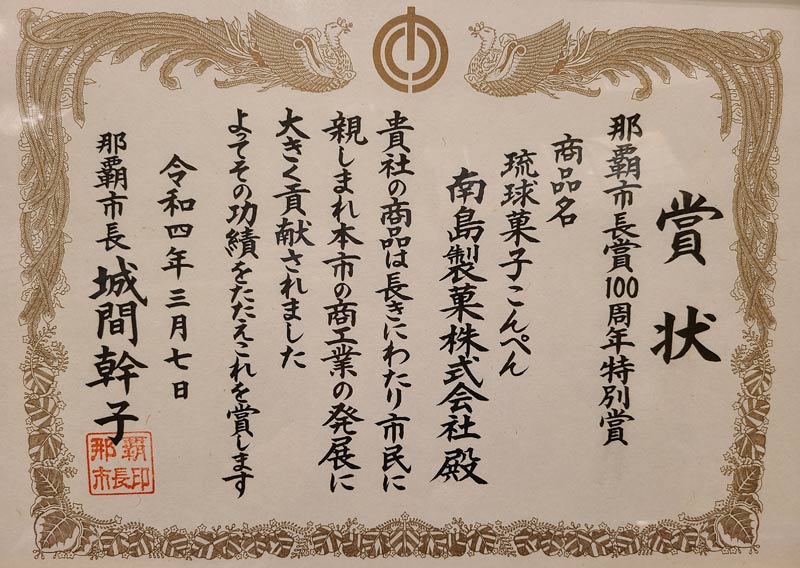 賞状
那覇市長賞100周年特別賞
商品名
琉球菓子こんぺん
南島製菓株式会社殿
貴社の商品は長きにわたり市民に
親しまれ本市の商工業の発展に
大きく貢献されました
よってその功績をたたえこれを賞します
令和四年三月七日
那覇市長 城間幹子
那覇
市長印